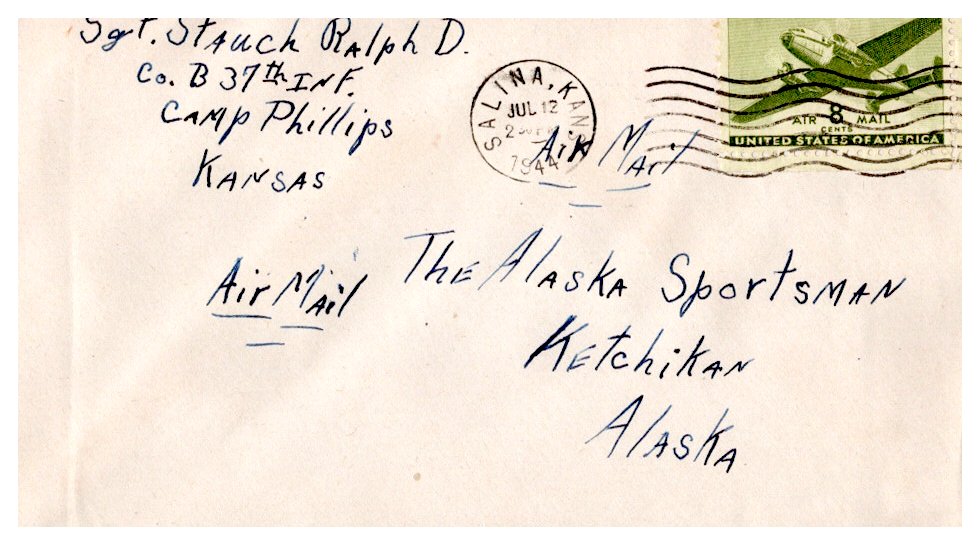 Sgt. Stauch Ralph D.
Co. B 37th Inf.
Camp Phillips
Kansas
SALINA, KANS
JUL 12
2
1944
AIR 8 MAIL
CENTS
UNITED STATES OF AMERICA
Air Mail
Air Mail
The Alaska Sportsman
Ketchikan
Alaska